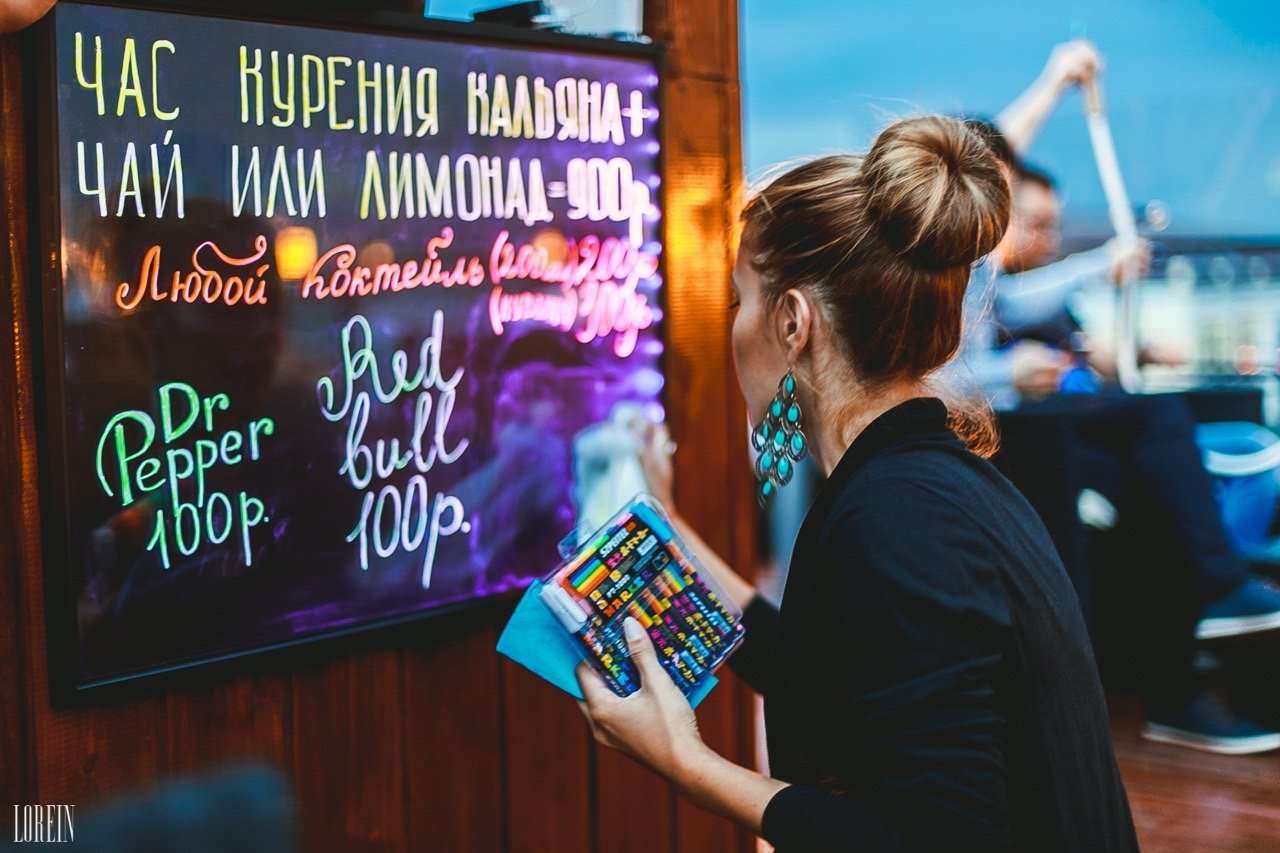 ЧАС КУРЕНИЯ КАЛЬЯНА+
ЧАЙ ИЛИ ЛИМОНАД=900р
Любой коктейль
Dr
Pepper
100р.
Red
bull
100р.
LOREIN